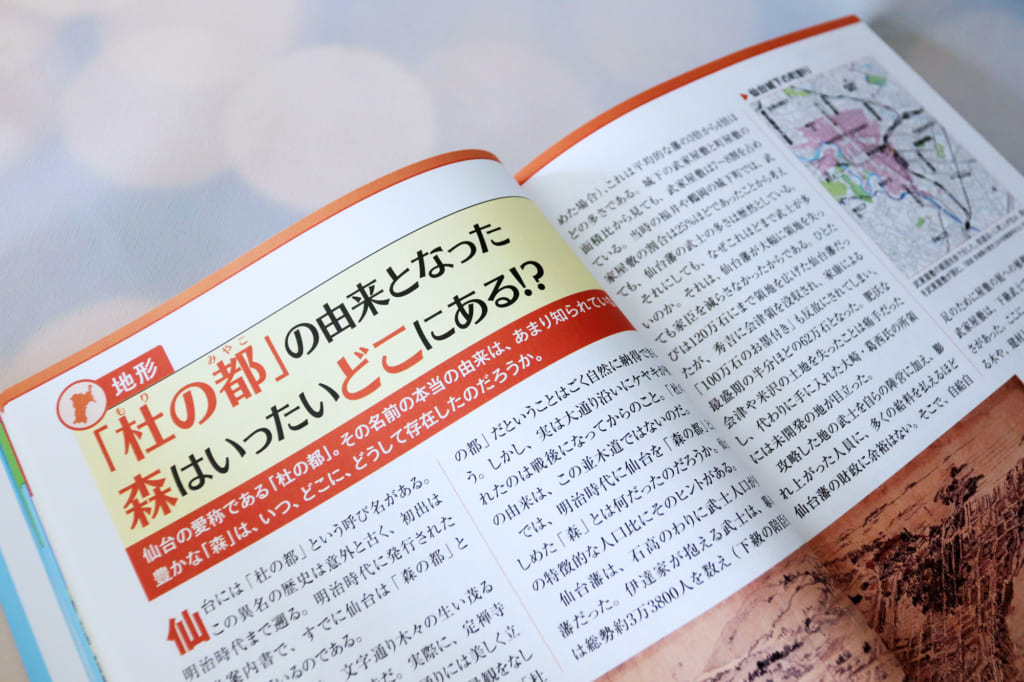 地形
「杜の都」の由来となった
もり
みやこ
森はいったいどこにある!?
仙台の愛称である「杜の都」。その名前の本当の由来は、あまり知られてい
豊かな「森」は、いつ、どこに、どうして存在したのだろうか。
仙台には「杜の都」という呼び名がある。
この異名の歴史は意外と古く、初出は
明治時代まで遡る。明治時代に発行された
案内書で、すでに仙台は「森の都」と
いるのである。
文字通り木々の生い茂る
だ。実際に、定禅寺
通りには美しく立
景観をなし
「杜
の都」だということはごく自然に納得で
う。しかし、実は大通り沿いにケヤキが
れたのは戦後になってからのこと。
の由来は、この並木道ではないのだ。
では、明治時代に仙台を「森の都」
しめた「森」とは何だったのだろうか。
の特徴的な人口比にそのヒントがある。
仙台藩は、石高のわりに武士人口が
藩だった。伊達家が抱える武士は、
は総勢約3万3800人を数え（下級の階
めた場合）、これは平均的な藩の3倍から4倍ほ
どの多さである。城下の武家屋敷と町屋敷の
面積比から見ても、武家屋敷は7〜8割を占め
ている。当時の福井や鶴岡の城下町では、武
家屋敷の割合は25%ほどであったことから考え
ても、仙台藩の武士の多さは歴然としている。
それにしても、なぜこれほどまで武士が多
いのか。それは、仙台藩が大幅に領地を失っ
ても家臣を減らさなかったからである。ひと
びは120万石にまで領地を広げた仙台藩だっ
たが、秀吉に会津領を没収され、家康による
「100万石のお墨付き」も反故にされてしまい、
最盛期の半分ほどの62万石となった。肥沃な
会津や米沢の土地を失ったことは痛手だった
し、代わりに手に入れた大崎・葛西氏の所領
には未開発の地が目立った。
攻略した地の武士を自らの陣営に加え、膨
れ上がった人員に、多くの給料を払えるほど
仙台藩の財政に余裕はない。そこで、自給自
足のために屋敷の庭への
武家屋敷は、
下級武士
さがあった。ここに
る木や、建材
仙台城下の町割り